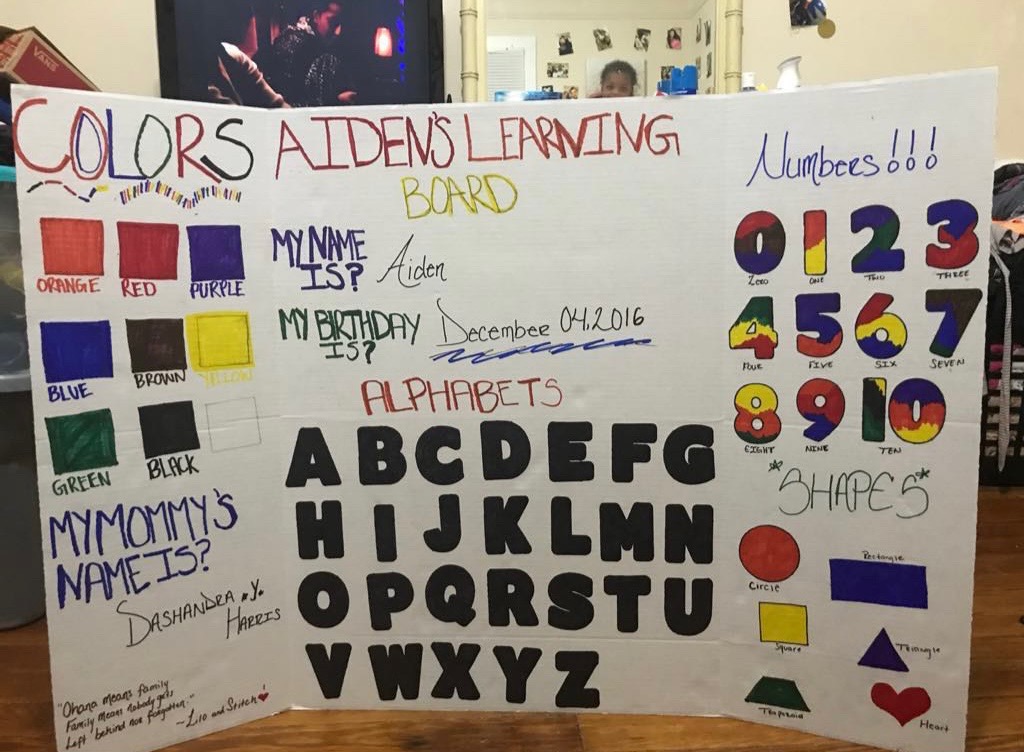 VANS
COLORS
ORANGE RED PURPLE
BLUE BROWN YELLOW
GREEN BLACK
MY MOMMY'S
NAME IS?
DASHANDRA .Y.
HARRIS
"Ohana means family
Family means nobody gets
Left behind nor forgotten."
~Lilo and Stitch
AIDEN'S LEARNING
BOARD
MY NAME
IS?
Aiden
MY BIRTHDAY
IS?
December 04.2016
ALPHABETS
A B C D E F G
H I J K L M N
O P Q R S T U
V W X Y Z
Numbers!!!
0 1 2 3
ZERO ONE TWO THREE
4 5 6 7
FOUR FIVE SIX SEVEN
8 9 10
EIGHT NINE TEN
*SHAPES*
Circle
Rectangle
Square
Triangle
Trapezoid
Heart